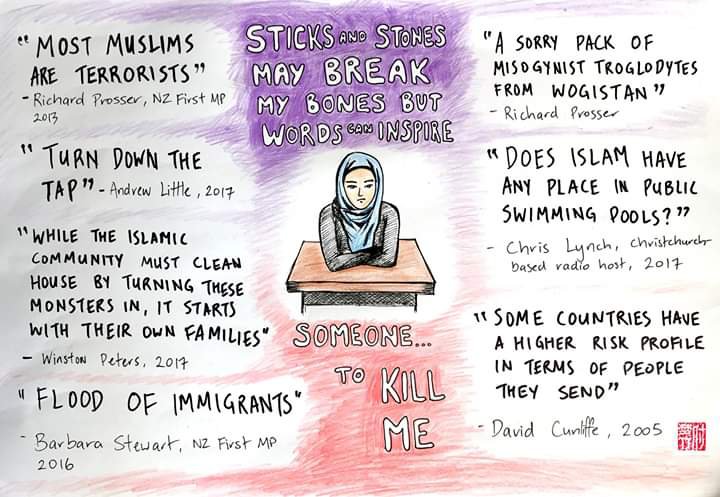 "MOST MUSLIMS
ARE TERRORISTS"
- Richard Prosser, NZ First MP
2013
"TURN DOWN THE
TAP" - Andrew Little, 2017
"WHILE THE ISLAMIC
COMMUNITY MUST CLEAN
HOUSE BY TURNING THESE
MONSTERS IN, IT STARTS
WITH THEIR OWN FAMILIES"
- Winston Peters, 2017
"FLOOD OF IMMIGRANTS"
- Barbara Stewart, NZ First MP
2016
STICKS AND STONES
MAY BREAK
MY BONES BUT
WORDS CAN INSPIRE
SOMEONE...
TO KILL
ME
"A SORRY PACK OF
MISOGYNIST TROGLODYTES
FROM WOGISTAN"
- Richard Prosser
"DOES ISLAM HAVE
ANY PLACE IN PUBLIC
SWIMMING POOLS?"
- Chris Lynch, christchurch-
based radio host, 2017
"SOME COUNTRIES HAVE
A HIGHER RISK PROFILE
IN TERMS OF PEOPLE
THEY SEND"
- David Cunliffe, 2005